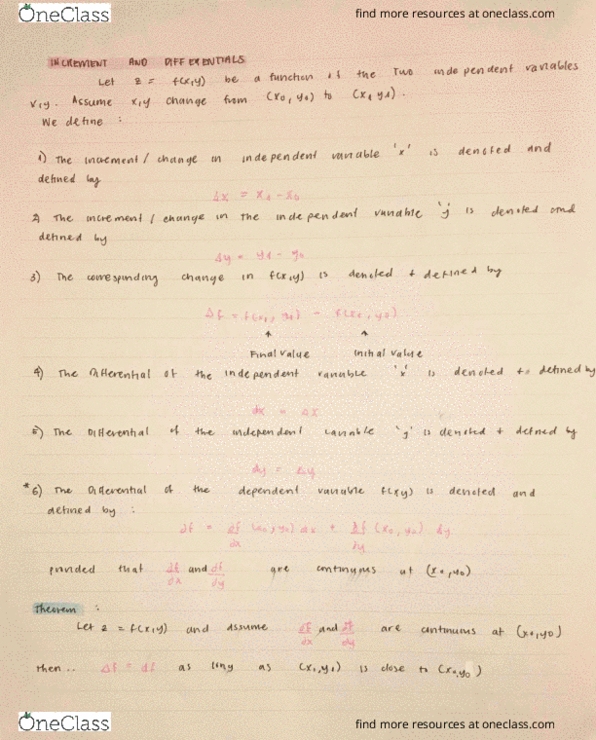 OneClass
find more resources at oneclass.com
INCREMENT AND DIFFERENTIALS
Let z = f(x,y) be a function of the Two independent variables
x,y. Assume x,y change from (x0, y0) to (x1 y1).
We define :
1) The increment / change in independent variable 'x' is denoted and
defined by
Δx = x1 - x0
2) The increment / change in the independent variable 'y' is denoted and
defined by
Δy = y1 - y0
3) The corresponding change in f(x,y) is denoted + defined by
Δf = f(x1, y1) - f(x0, y0)
Final Value Initial Value
4) The Differential of the independent variable 'x' is denoted + defined by
dx = Δx
5) The Differential of the independent variable 'y' is denoted + defined by
dy = Δy
*6) The Differential of the dependent variable f(xy) is denoted and
defined by :
df = ∂f/∂x (x0, y0) Δx + ∂f/∂y (x0, y0) Δy
provided that ∂f/∂x and ∂f/∂y are continuous at (x0, y0)
Theorem :
Let z = f(x,y) and assume ∂f/∂x and ∂f/∂y are continuous at (x0, y0)
then .. Δf = df as long as (x1, y1) is close to (x0, y0)
OneClass
find more resources at oneclass.com